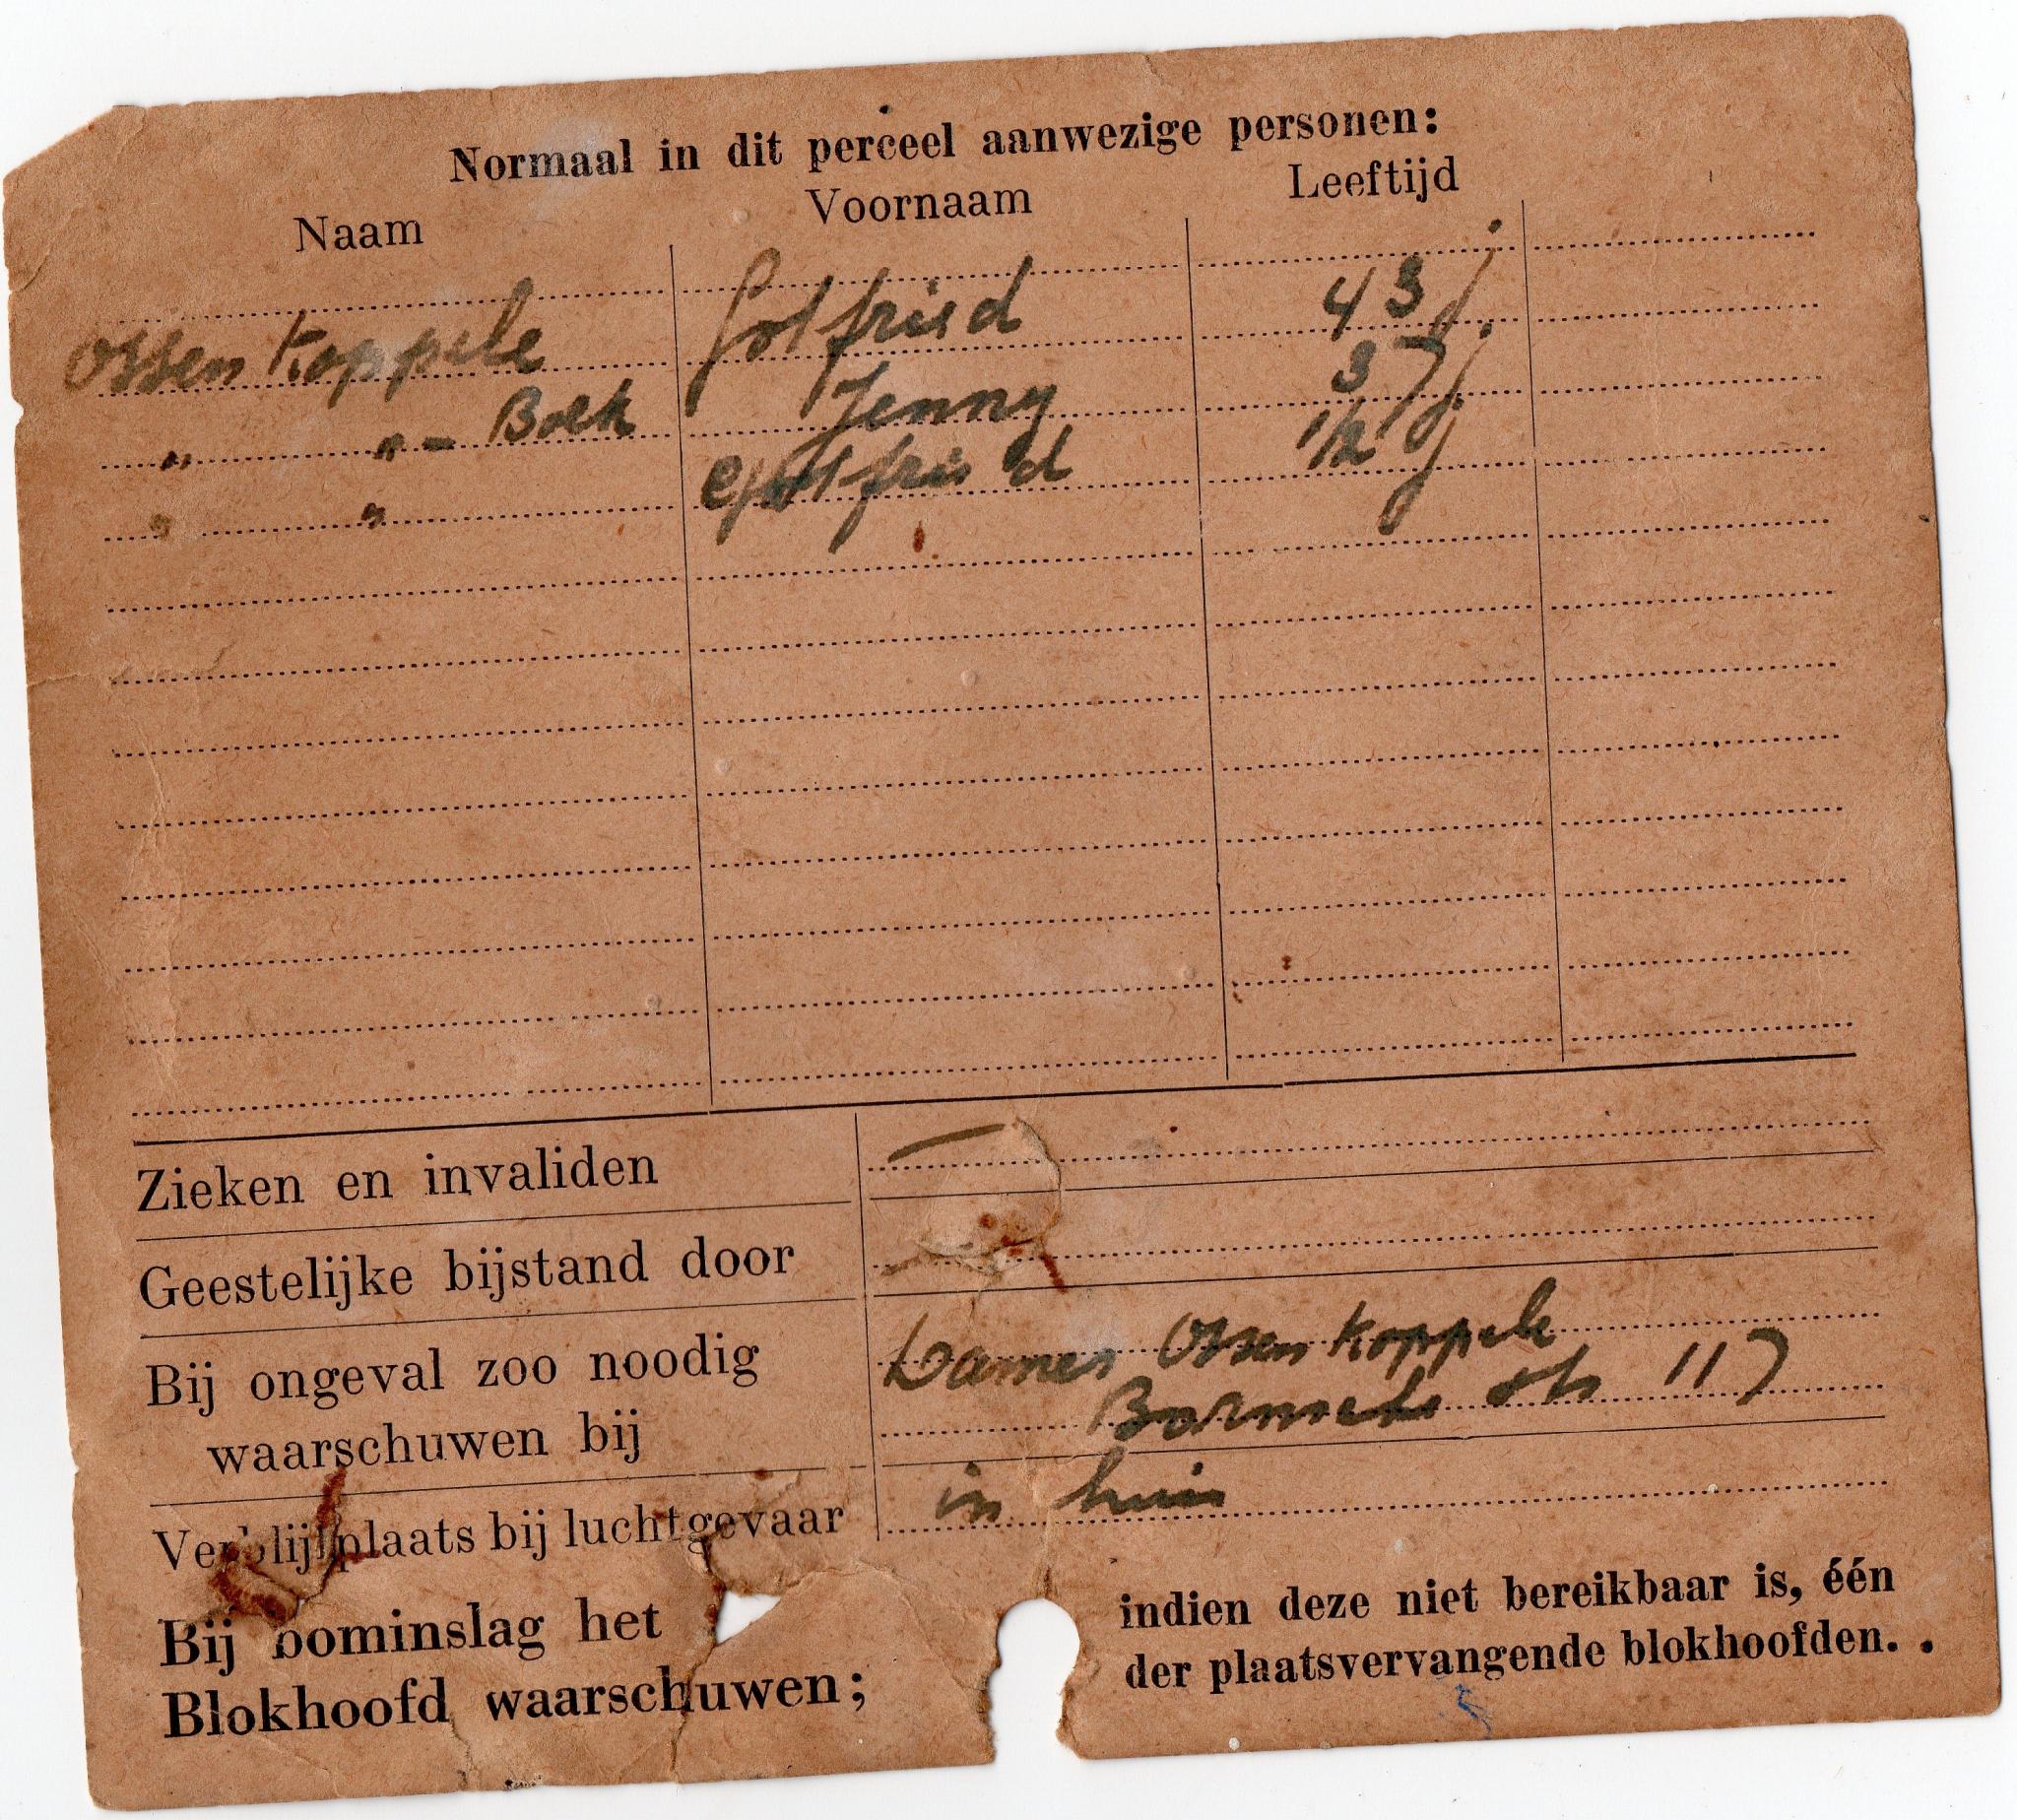 Normaal in dit perceel aanwezige personen:
Naam Voornaam Leeftijd
Ossenkoppele Gotfried 43 j.
" " - Boek Jenny 37 j.
" " Gotfried 1/2 j
Zieken en invaliden —
Geestelijke bijstand door
Bij ongeval zoo noodig Dames Ossenkoppele
waarschuwen bij 117
Verblijfplaats bij luchtgevaar in huis
Bij bominslag het
Blokhoofd waarschuwen;
indien deze niet bereikbaar is, één
der plaatsvervangende blokhoofden. .